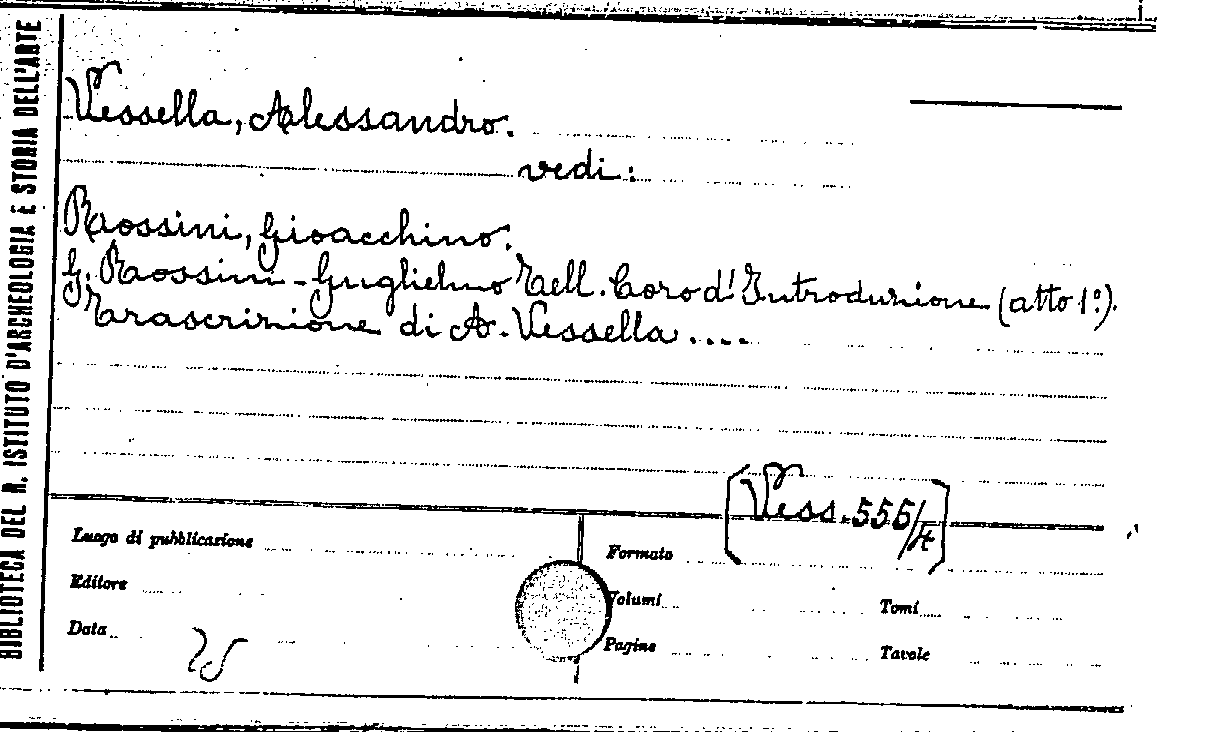 BIBLIOTECA DEL R. ISTITUTO D'ARCHEOLOGIA E STORIA DELL'ARTE
Vessella, Alessandro.
vedi:
Rossini, Gioacchino.
G. Rossini - Guglielmo Tell. Coro d'Introduzione (atto 1º).
Trascrizione di A. Vessella ....
[Vess. 556/4]
Luogo di pubblicazione
Formato
Editore
Volumi
Tomi
Data
Pagine
Tavole